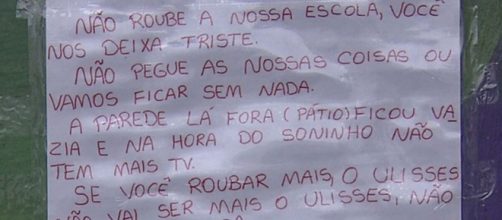 NÃO ROUBE A NOSSA ESCOLA, VOCÊ
NOS DEIXA TRISTE.
NÃO PEGUE AS NOSSAS COISAS OU
VAMOS FICAR SEM NADA.
A PAREDE LÁ FORA (PÁTIO) FICOU VA
ZIA E NA HORA DO SONINHO NÃO
TEM MAIS TV.
SE VOCÊ ROUBAR MAIS, O ULISSES
NÃO VAI SER MAIS O ULISSES, NÃO